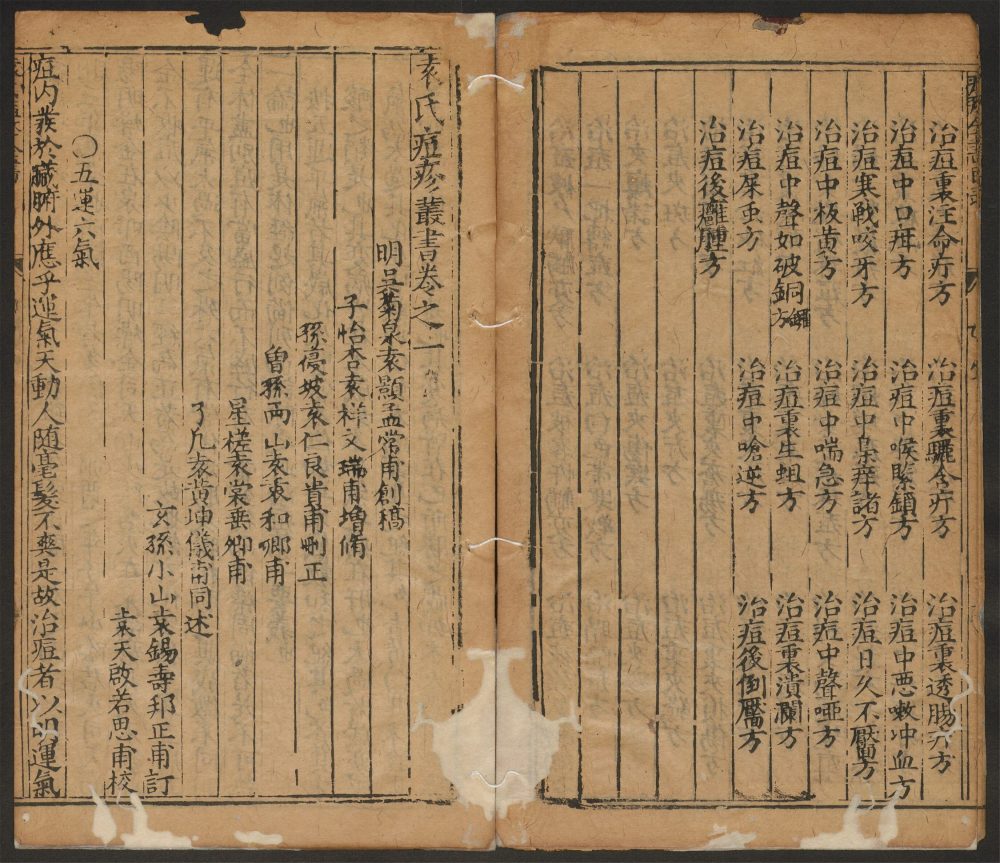 治痘裏注命疔方　治痘裏驪含疔方　治痘裏透腸疔方
治痘中口疳方　治痘中喉緊鎖方　治痘中悪嗽冲血方
治痘寒戰咬牙方　治痘中朶痒諸方　治痘日久不靨方
治痘中板黄方　治痘中喘急方　治痘中聲啞方
治痘中聲如破銅鑼方　治痘裏生蛆方　治痘裏潰瀾方
治痘屎虫方　治痘中嗆逆方　治痘後倒靨方
治痘後癰腫方
袁氏痘疹叢書卷之一
明吴菊泉袁顥孟常甫創稿
子怡杏袁祥文瑞甫增脩
孫㕘坡袁仁良貴甫刪正
曾孫兩山袁袠和卿甫
星槎袁裳垂卿甫
了凡袁黄坤儀甫同述
玄孫小山袁錫壽邦正甫訂
袁天啟若思甫校
〇五運六氣
痘内發於臓腑外應乎運氣天動人随毫髮不爽是故治痘者以明運氣